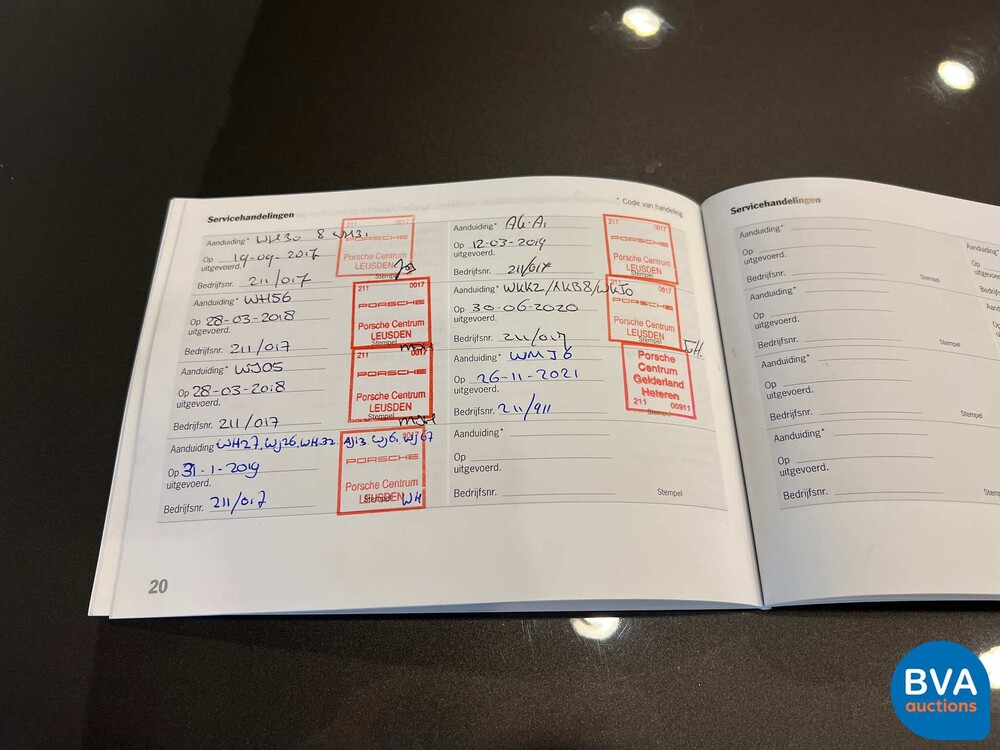 Servicehandelingen
* Code van handeling
Aanduiding* WH30 & WH31
Op 19-09-2017
uitgevoerd.
Bedrijfsnr. 211/017
Stempel
211 0017
PORSCHE
Porsche Centrum
LEUSDEN
Aanduiding* WH56
Op 28-03-2018
uitgevoerd.
Bedrijfsnr. 211/017
211 0017
PORSCHE
Porsche Centrum
LEUSDEN
Stempel
Aanduiding* WJ05
Op 28-03-2018
uitgevoerd.
Bedrijfsnr. 211/017
211 0017
PORSCHE
Porsche Centrum
LEUSDEN
Stempel
Aanduiding WH27, WJ26, WH32, AJ13 WJ61 WJ67
Op 31-1-2019
uitgevoerd.
Bedrijfsnr. 211/017
0017
PORSCHE
Porsche Centrum
LEUSDEN
Stempel WH
Aanduiding*
Op 12-03-2019
uitgevoerd.
Bedrijfsnr. 211/017
211 0017
PORSCHE
Porsche Centrum
LEUSDEN
Stempel
Aanduiding* WKK2/AKB8/WKJ0
Op 30-06-2020
uitgevoerd.
Bedrijfsnr. 211/017
211 0017
PORSCHE
Porsche Centrum
LEUSDEN
Stempel
Aanduiding* WMJ6
Op 26-11-2021
uitgevoerd.
Bedrijfsnr. 211/911
Porsche
Centrum
Gelderland
Heteren
211 00911
Aanduiding*
Op
uitgevoerd.
Bedrijfsnr.
Stempel
20
Servicehandelingen
Aanduiding*
Op
uitgevoerd.
Bedrijfsnr.
Stempel
Aanduiding*
Op
uitgevoerd.
Bedrijfsnr.
Stempel
Aanduiding*
Op
uitgevoerd.
Bedrijfsnr.
Stempel
Aanduiding*
Op
uitgevoerd.
Bedrijfsnr.
Stempel
Aanduiding*
Op
uitgevoerd.
BVA
auctions